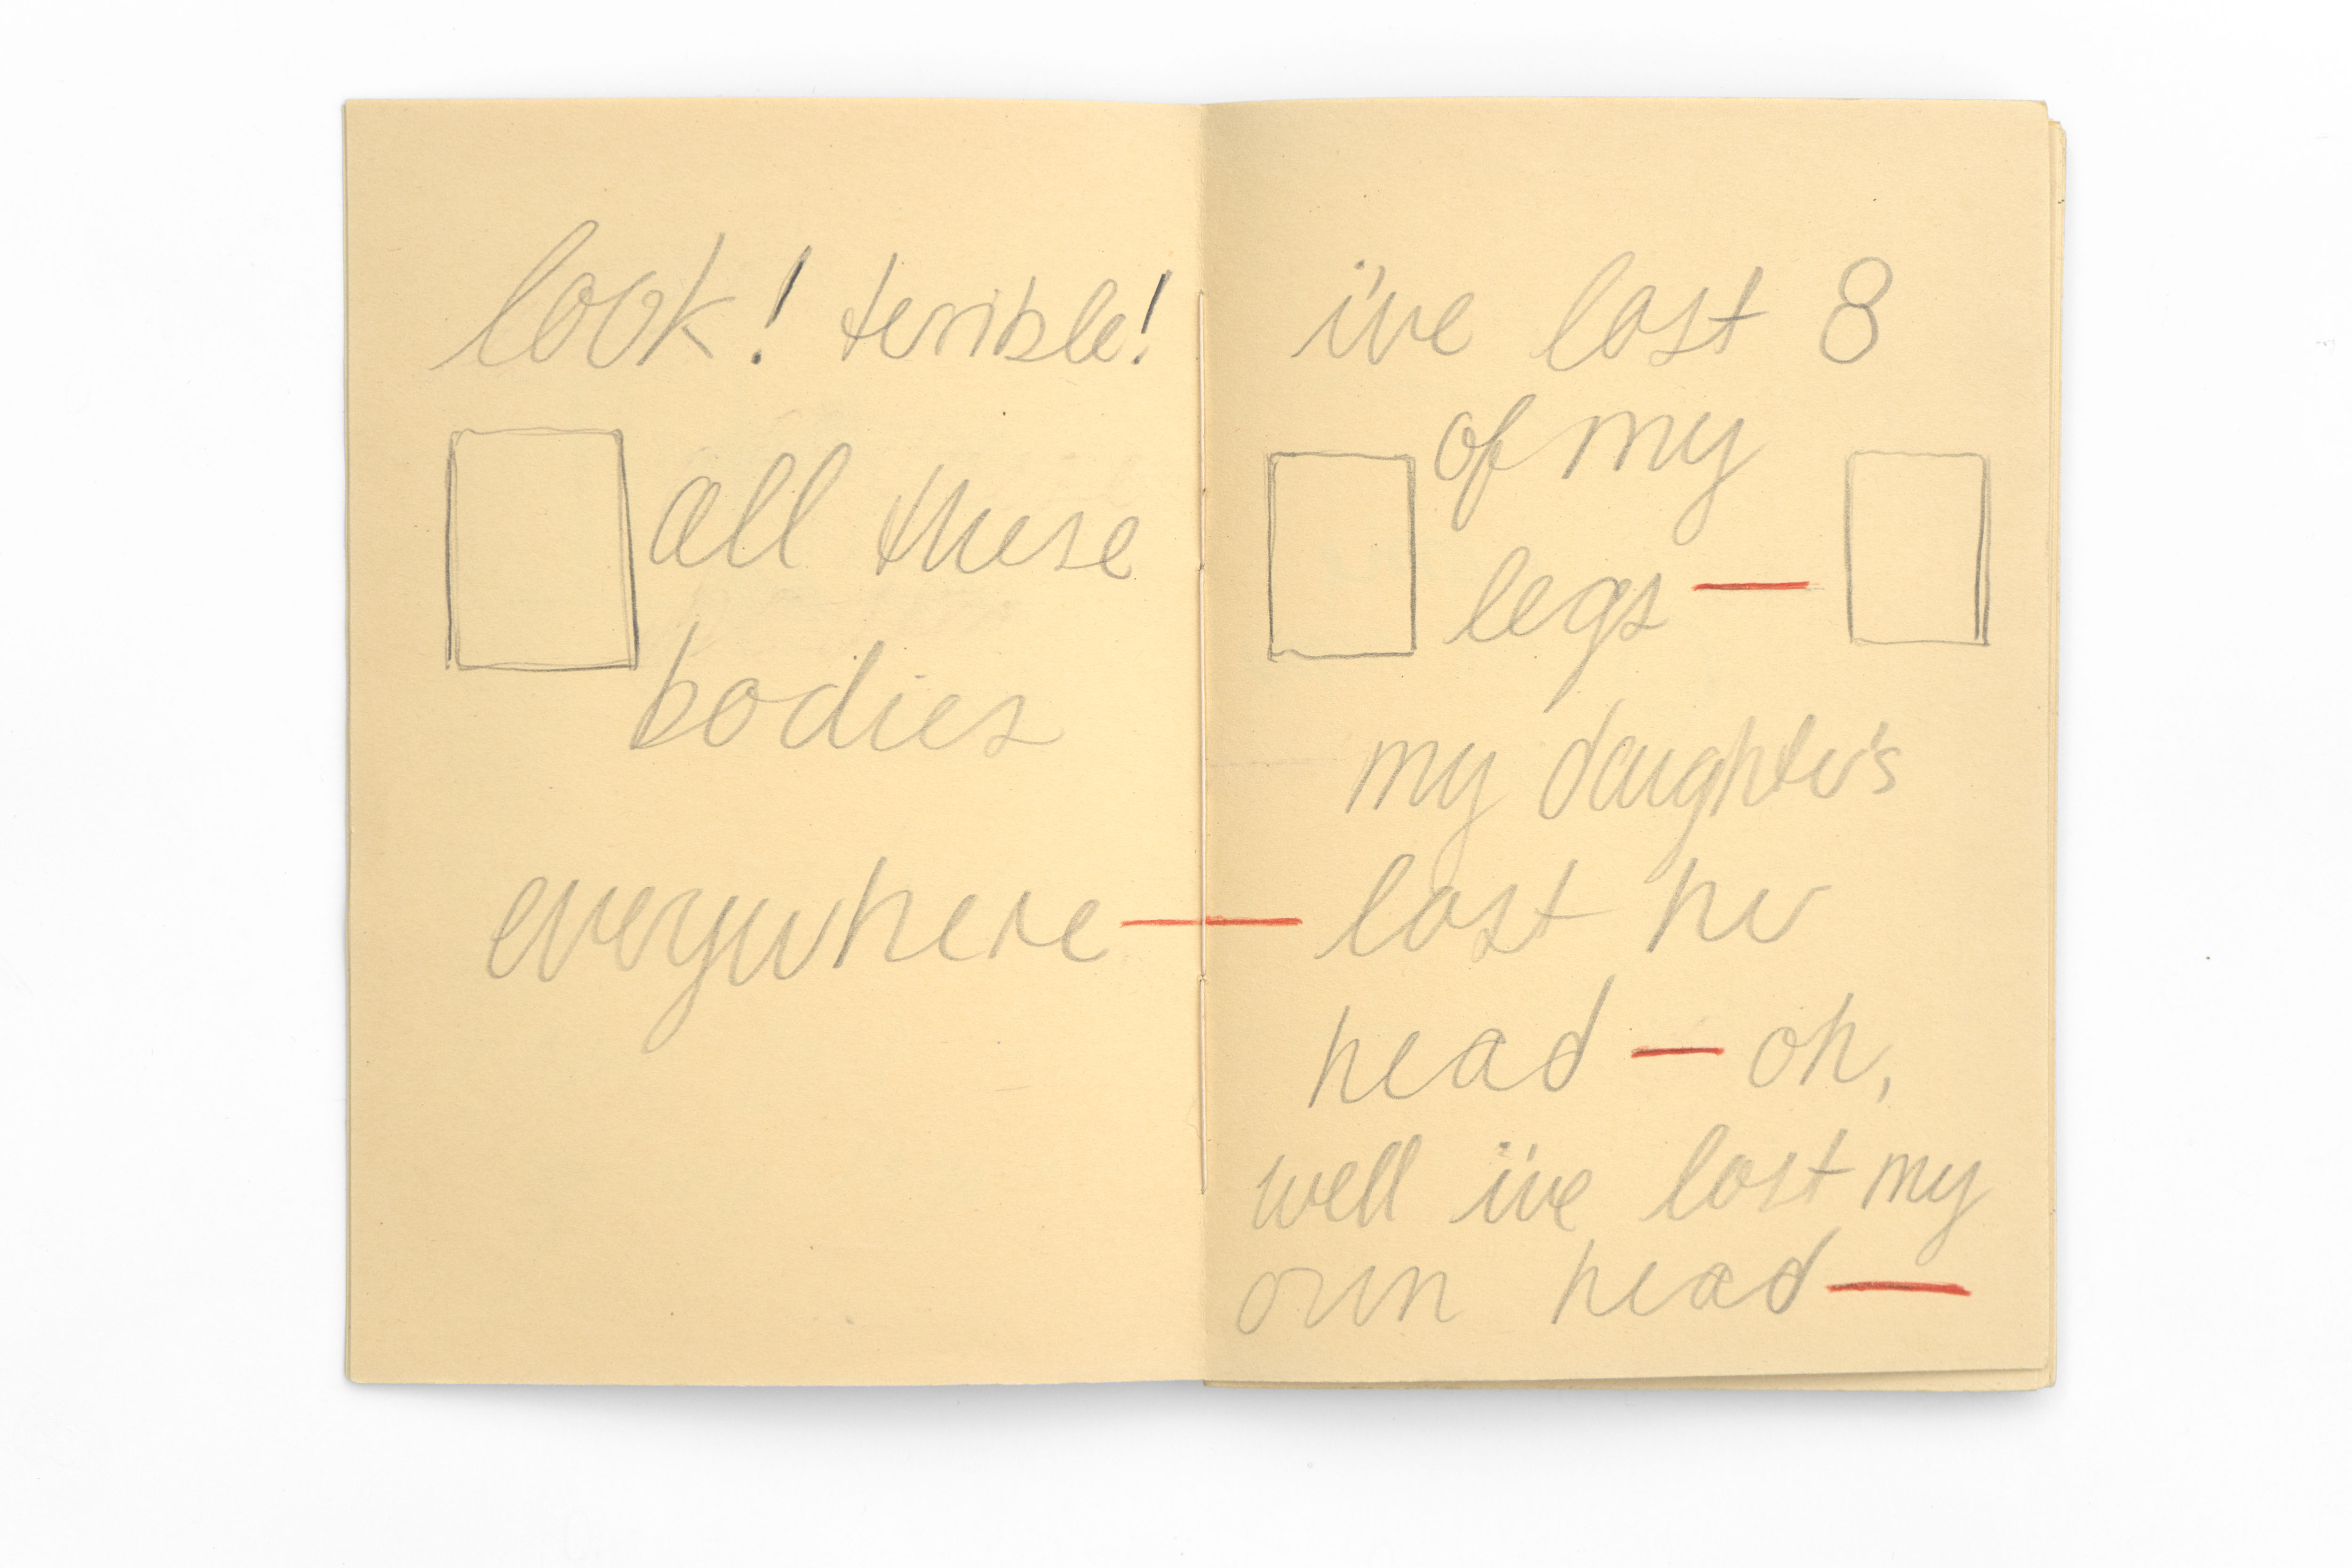 look! terrible!
all these
bodies
everywhere —
i've lost 8
of my
legs —
my daughter's
lost her
head — oh,
well i've lost my
own head —